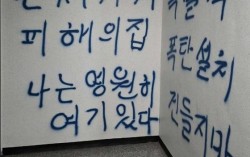 피해의집
나는 영원히
여기 있다
폭탄 설치
건들지마